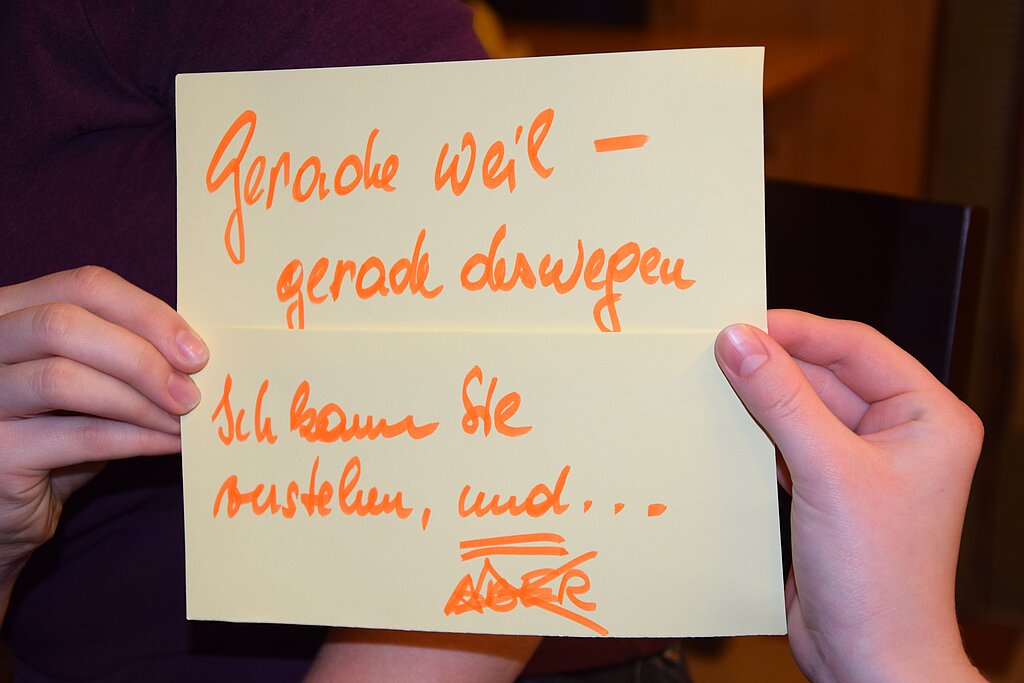 Gerade weil –
gerade deswegen
Ich kann Sie
verstehen, und...
ABER